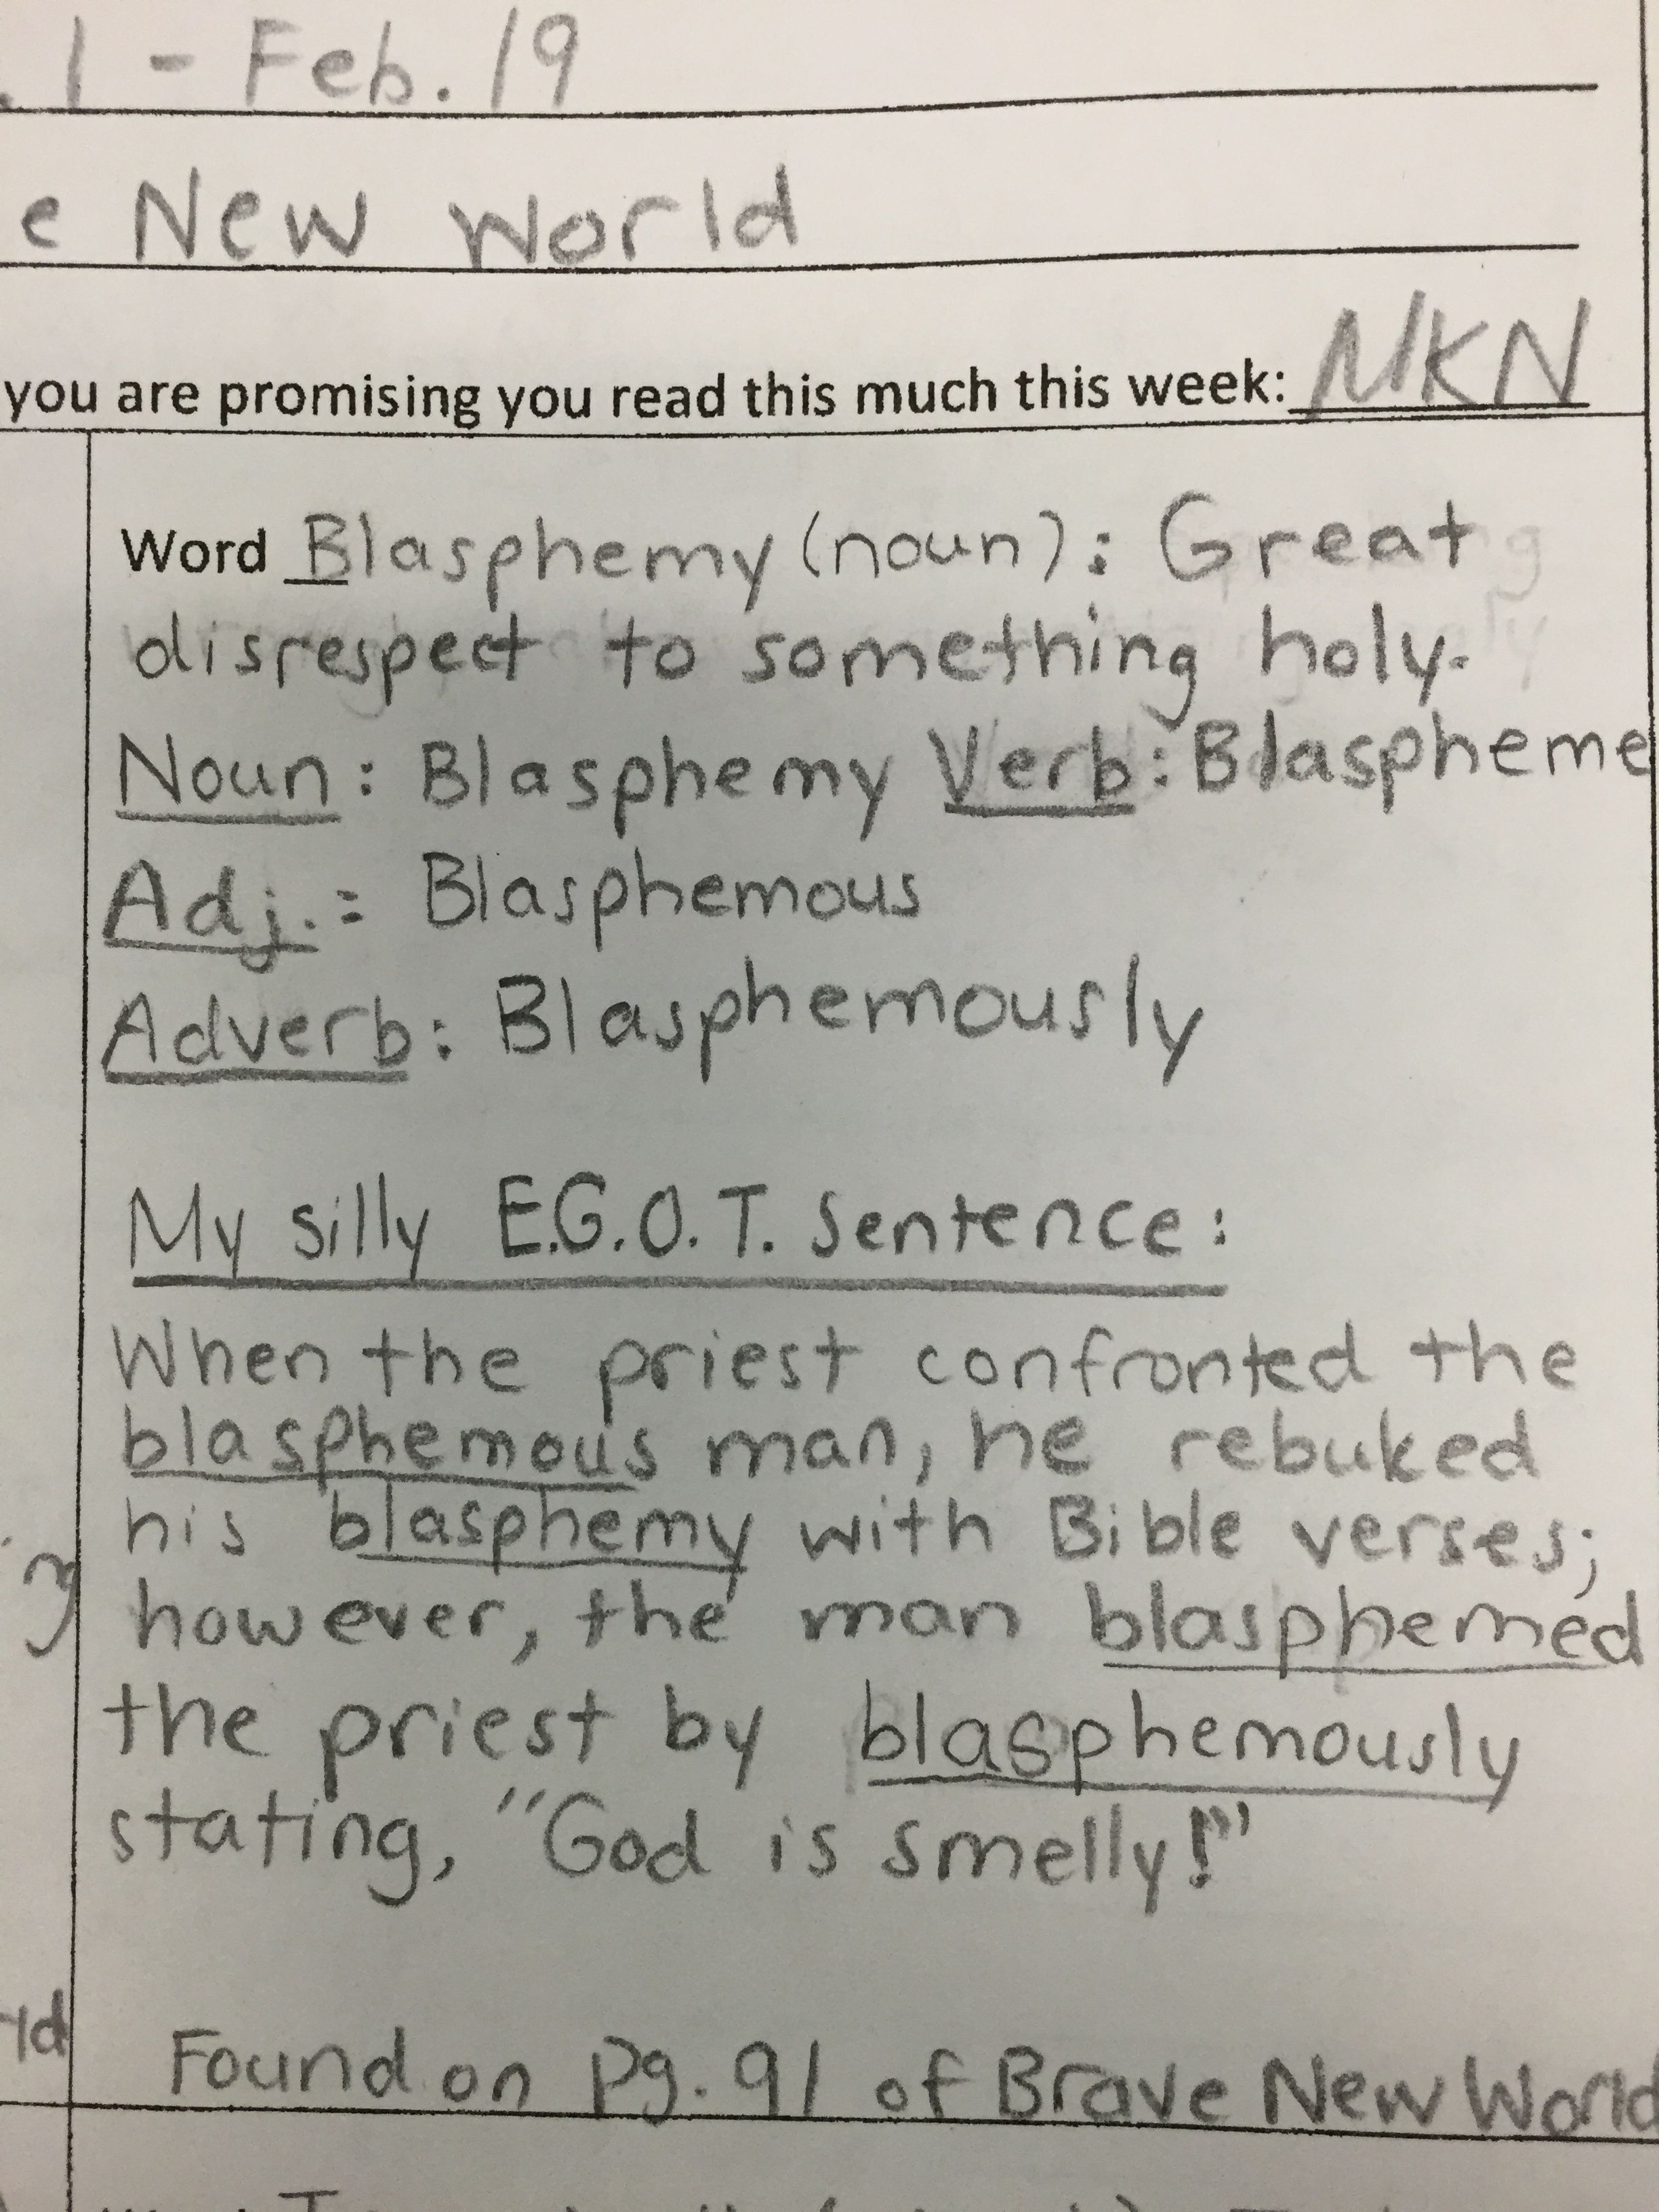 . 1 - Feb. 19
e New World
you are promising you read this much this week: NKN
Word Blasphemy (noun): Great
disrespect to something holy.
Noun: Blasphemy Verb: Blaspheme
Adj.: Blasphemous
Adverb: Blasphemously
My silly E.G.O.T. Sentence:
When the priest confronted the
blasphemous man, he rebuked
his blasphemy with Bible verses;
however, the man blasphemed
the priest by blasphemously
stating, "God is smelly!"
rld
Found on pg. 91 of Brave New World